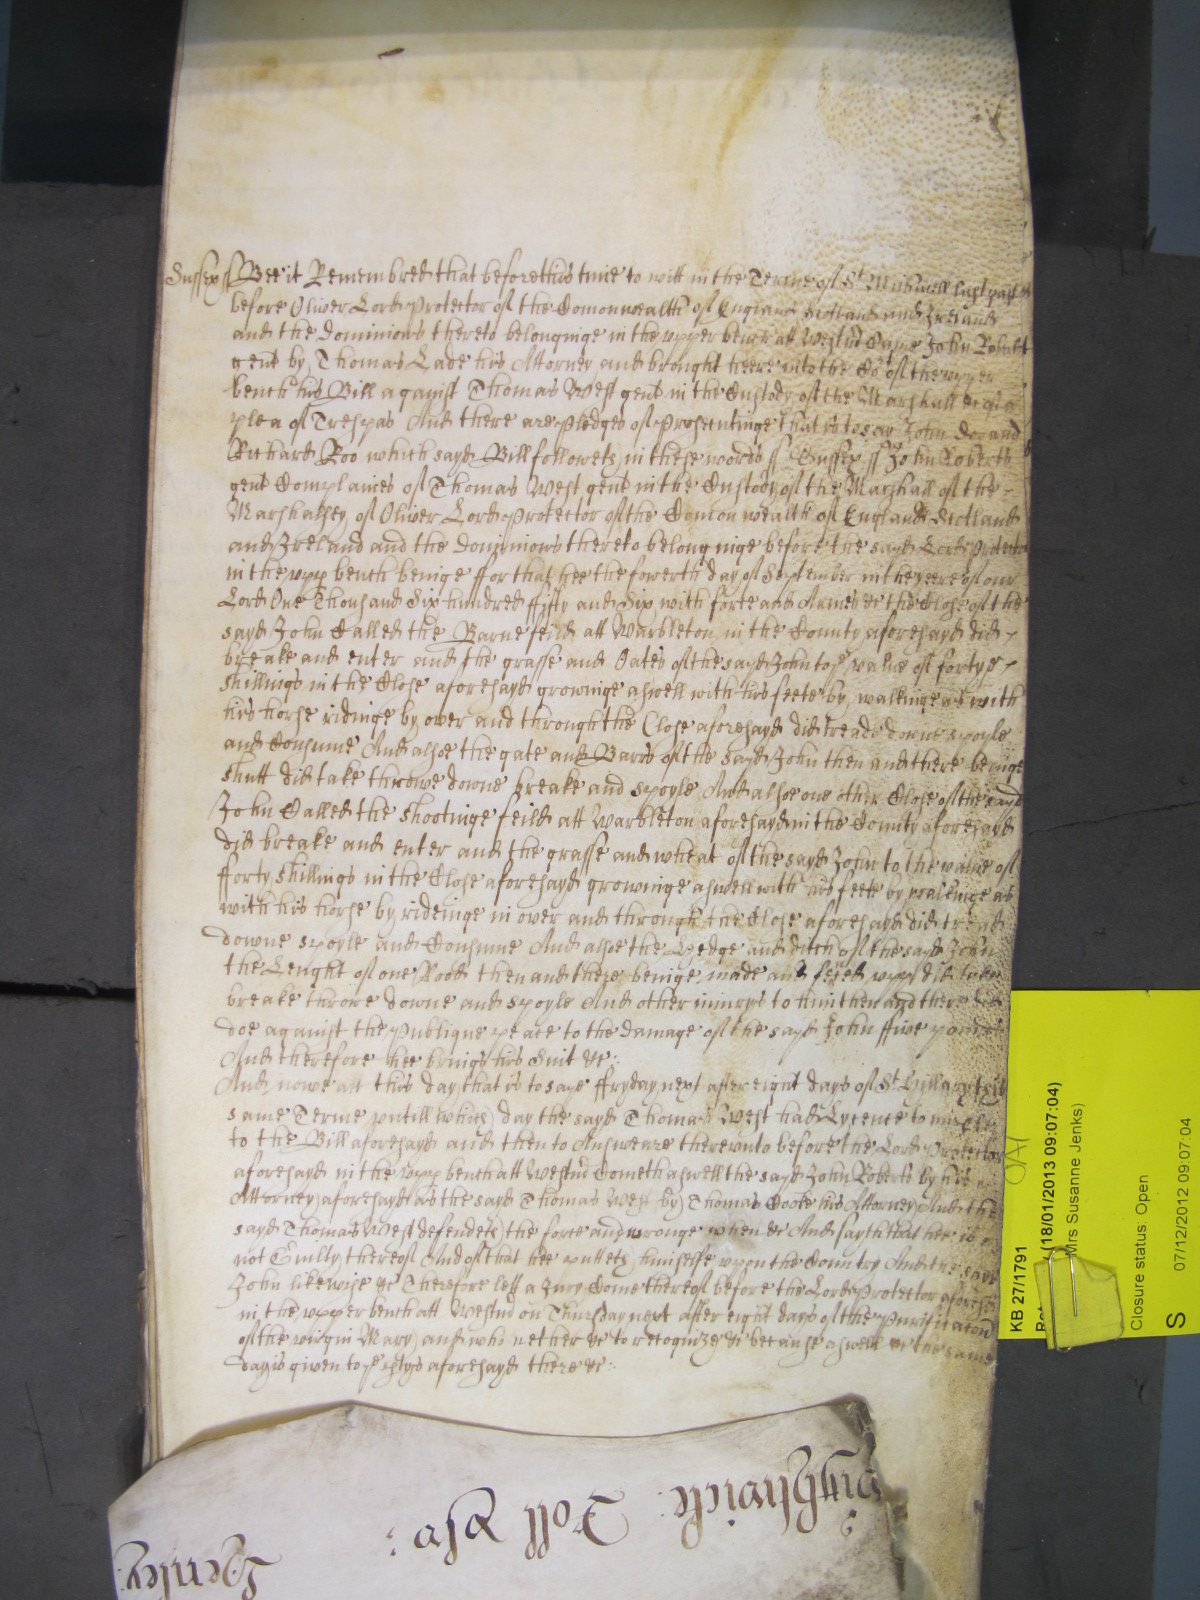 Sussex ss Bee it Remembred that before this time to witt in the Terme of St Michaell last past
before Oliver Lord Protector of the Comonwealth of England Scotland and Ireland
and the Dominions thereto belonginge in the upper bench att Westm̃ Came John Roberts
gent by Thomas Lade his Attorney and brought heere into the Co of the upper
bench his Bill against Thomas West gent in the Custody of the Marshall &c of a
plea of Trespas And there are pledges of prosecutinge that is to say John Doe and
Richard Roo which sayd Bill followeth in these words ss Sussex ss John Roberts
gent Complaines of Thomas West gent in the Custody of the Marshall of the
Marshalsey of Oliver Lord Protector of the Comon wealth of England Scotland
and Ireland and the Dominions thereto belonginge before the sayd Lord Protector
in the upp bench beinge ffor that hee the fowerth day of September in the yeere of our
Lord One Thousand Six hundred ffifty and Six with force and Armes &c the Close of the
sayd John Called the Barne feild att Warbleton in the County aforesayd did
breake and enter and the grasse and Oates of the sayd John to ye value of forty
shillings in the Close aforesayd growinge aswell with his feete by walkinge as with
his horse ridinge by over and throught the Close aforesayd did treade downe spoyle
and Consume And alsoe the gate and Barrs of the sayd John then and there beinge
shutt did take throwe downe breake and spoyle And alsoe one other Close of the sayd
John Called the Shootinge feild att Warbleton aforesayd in the County aforesayd
did breake and enter and the grasse and wheat of the sayd John to the value of
fforty shillings in the Close aforesayd growinge aswell with his feete by walkinge as
with his horse by rideinge in over and through the Close aforesayd did treade
downe spoyle and Consume And alsoe the hedge and ditch of the sayd John
the Lenght of one Rodd then and there beinge made and upp did take
breake throwe downe and spoyle And other iniuryes to him then and there did
doe against the publique peace to the damage of the sayd John ffive pounds
And therefore hee brings his Suit &c:
And nowe att this day that is to saye ffryday next after eight days of St Hillary this
same Terme untill which day the sayd Thomas West had Lycence to imparle
to the Bill aforesayd and then to Answeare thereunto before the Lord Protector
aforesayd in the upp bench att Westm̃ Cometh aswell the sayd John Roberts by his
Attorney aforesayd as the sayd Thomas West by Thomas Cooke his Attorney And the
sayd Thomas West defendeth the force and wronge when &c And sayth that hee is
not Guilty thereof And of that hee putteth himselfe upon the Country And the sayd
John likewise &c Therefore lett a Jury Come thereof before the Lord Protector aforesayd
in the upper bench att Westm̃ on Thursday next after eight days of the Purificacon
of the virgin Mary and who nether &c to recognize &c because aswell &c the same
day is given to ye ptyes aforesayd there &c:
Roll
Henley
KB 27/1791
(18/01/2013 09:07:04)
Mrs Susanne Jenks)
Closure status: Open
S 07/12/2012 09:07:04